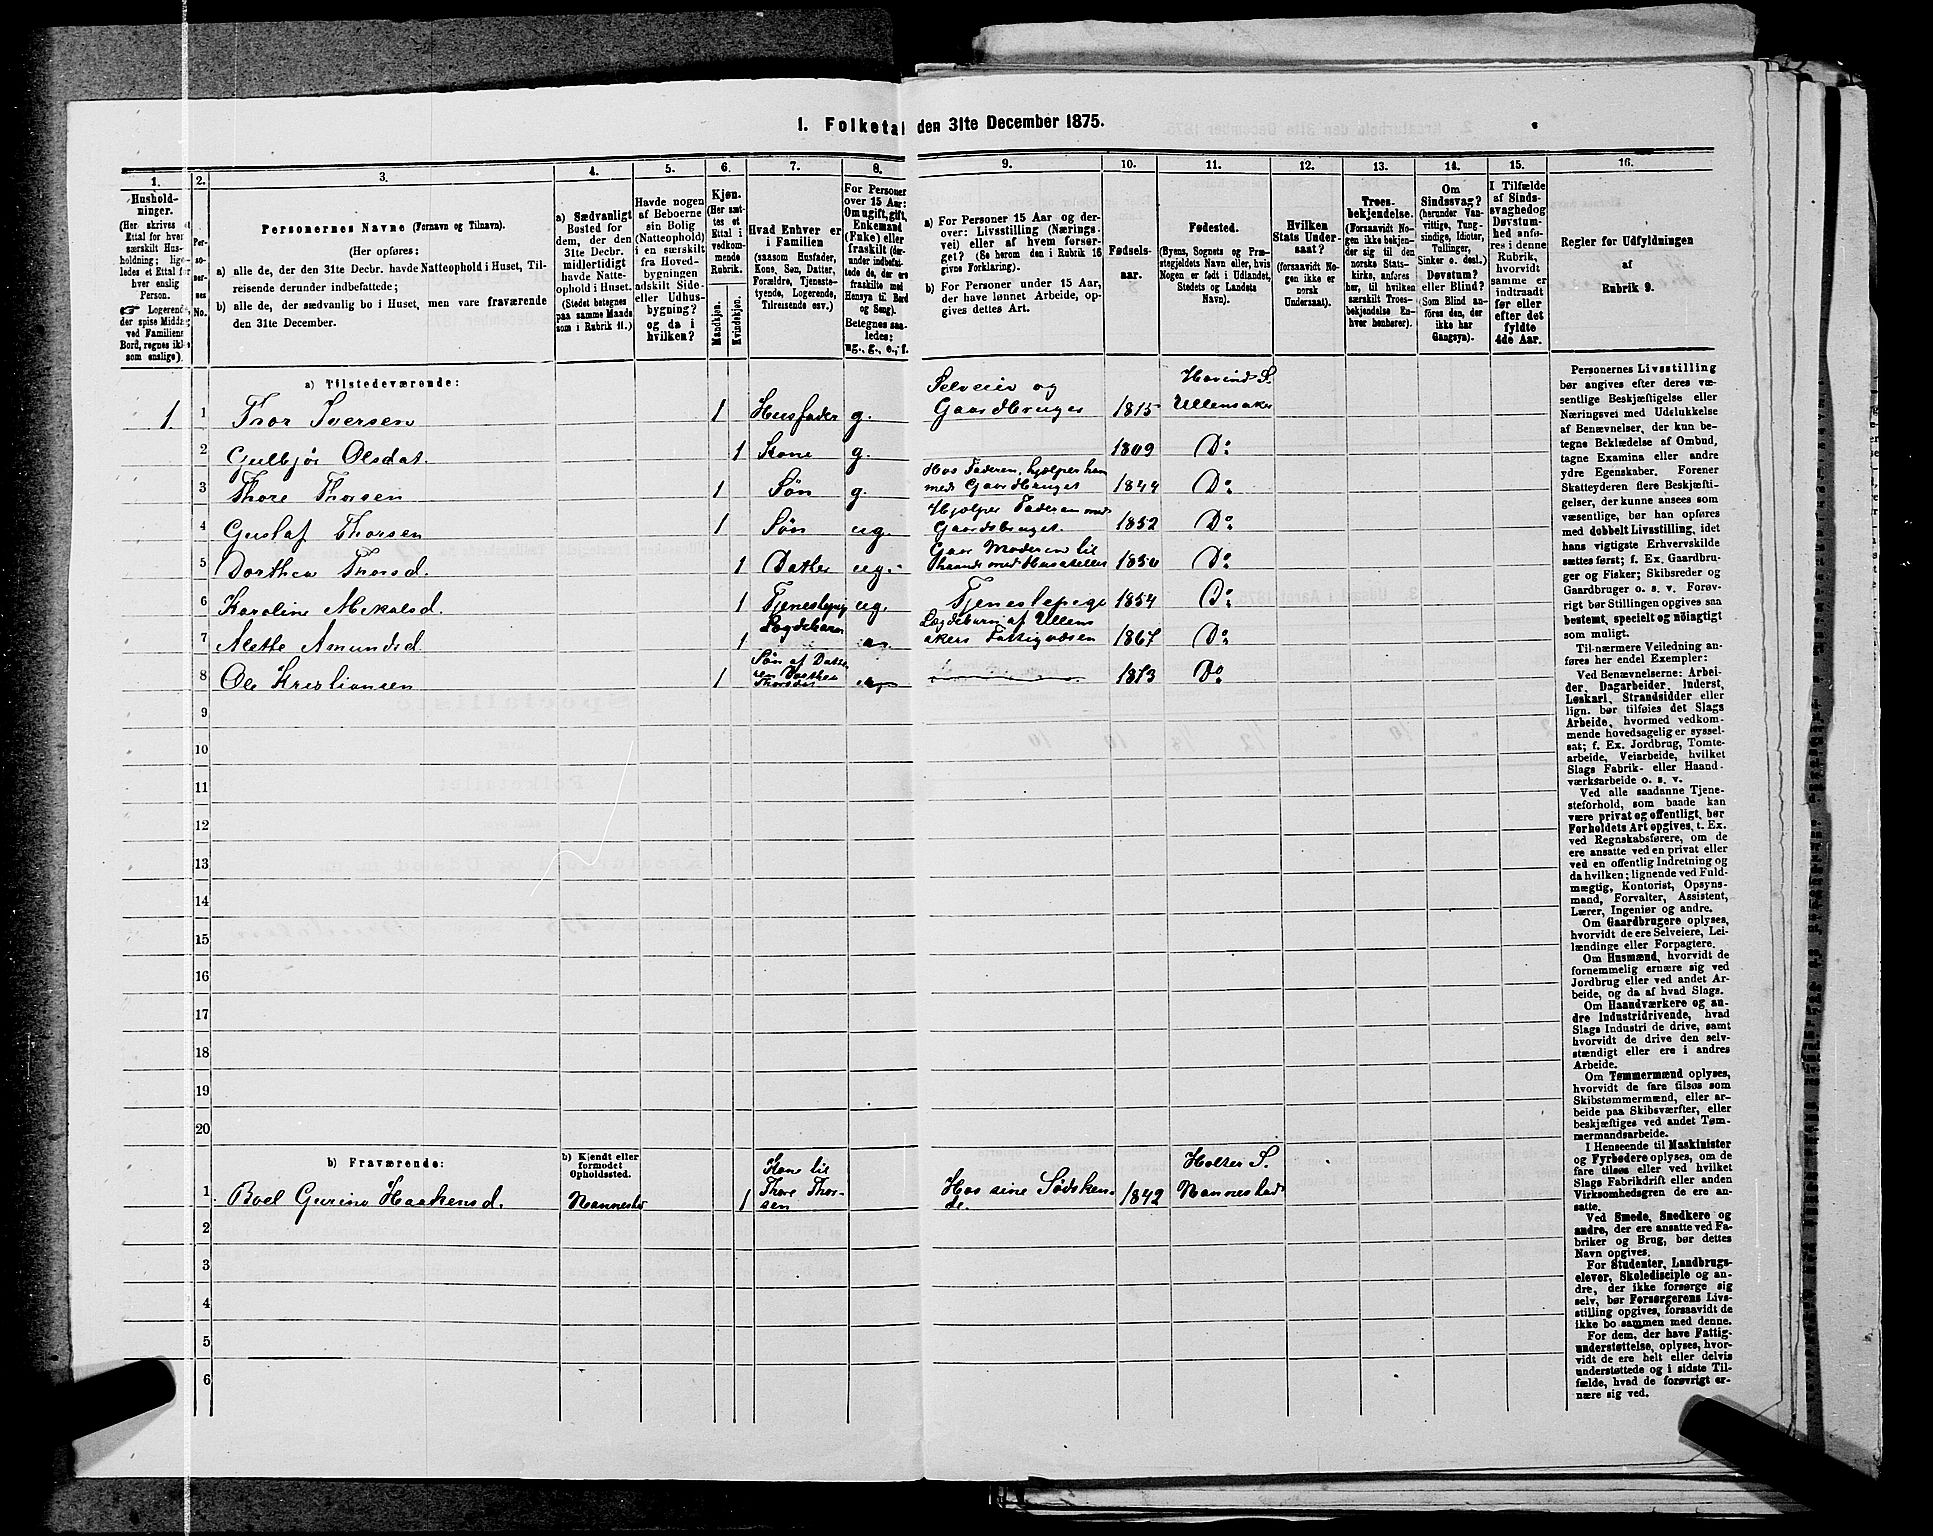 1. Folketal den 31te December 1875.
1. 2. 3. 4. 5. 6. 7. 8. 9. 10. 11. 12. 13. 14. 15. 16.
Hushold-
ninger.
(Her skrives et
Ettal for hver
særskilt Hus-
holdning; lige-
ledes et Ettal for
hver enslig
Person.
☞ Logerende,
der spise Middag
ved Familiens
Bord, regnes ikke
som enslige).
Per-
so-
ner-
nes
No.
Personernes Navne (Fornavn og Tilnavn).
(Her opføres:
a) alle de, der den 31te Decbr. havde Natteophold i Huset, Til-
reisende derunder indbefattede;
b) alle de, der sædvanlig bo i Huset, men vare fraværende
den 31te December.
a) Sædvanligt
Bosted for
dem, der den
31te Decbr.
midlertidigt
havde Natte-
ophold i Huset.
(Stedet betegnes
paa samme Maade
som i Rubrik 11.)
Havde nogen
af Beboerne
sin Bolig
(Natteophold)
i en særskilt
fra Hoved-
bygningen
adskilt Side-
eller Udhus-
bygning?
og da i
hvilken?
Kjøn.
(Her sæt-
tes et
Ettal i
vedkom-
mende
Rubrik.
Mandkjøn.
Kvindekjøn.
Hvad Enhver er
i Familien
(saasom Husfader,
Kone, Søn, Datter,
Forældre, Tjeneste-
tyende, Logerende,
Tilreisende osv.)
For Personer
over 15 Aar:
Om ugift, gift,
Enkemand
(Enke) eller
fraskilt (der-
under indbefat-
tede de, der ere
fraskilte med
Hensyn til Bord
og Seng).
Betegnes saa-
ledes:
ug., g., e., f.
a) For Personer 15 Aar og der-
over: Livsstilling (Nærings-
vei) eller af hvem forsør-
get? (Se herom den i Rubrik 16
givne Forklaring).
b) For Personer under 15 Aar,
der have lønnet Arbeide, op-
gives dettes Art.
Fødsels-
aar.
Fødested.
(Byens, Sognets og Præ-
stegjeldets Navn eller, hvis
Nogen er født i Udlandet,
Stedets og Landets
Navn).
Hvilken
Stats Under-
saat?
(forsaavidt No-
gen ikke er
norsk
Undersaat).
Troes-
bekjendelse.
(Forsaavidt No-
gen ikke bekjen-
der sig til den
norske Stats-
kirke, anføres
her, til hvilken
særskilt Troes-
bekjendelse En-
hver henhører).
Om
Sindssvag?
(herunder Van-
vittige, Tung-
sindige, Idioter,
Tullinger,
Sinker o. desl.)
Døvstum?
eller Blind?
(Som Blind an-
føres den, der
ikke har
Gangsyn).
I Tilfælde
af Sinds-
svaghed og
Døvstum-
hed anfø-
res i denne
Rubrik,
hvorvidt
samme er
indtraadt
før eller
efter det
fyldte
4de Aar.
Regler for Udfyldningen
af
Rubrik 9.
a) Tilstedeværende:
1 1 Thor Iversen 1 Husfader g. Selveier og Gaardbruger 1815 Hovind S. Ullensaker
2 Gulbjør Olsdat. 1 Kone g. 1809 Do
3 Thore Thorsen 1 Søn g. Hos Faderen, hjælper ham med Gaardbruget 1844 Do
4 Gustaf Thorsen 1 Søn ug. Hjælper Faderen med Gaardsbruget. 1852 Do
5 Dorthea Thorsd. 1 Datter ug. Gaar Moderen til Haande med Husstellet 1850 Do
6 Karoline Mekalsd. 1 Tjenestepig ug. Tjenestepige 1854 Do
7 Alette Amundsd. 1 Lægdebarn Lægdebarn af Ullensakers Fattigvæsen 1867 Do
8 Ole Kristiansen 1 Søn af Datteren Dorthea Thorsdat 1873 Do
9
10
11
12
13
14
15
16
17
18
19
20
b) Fraværende:
b) Kjendt eller
formodet
Opholdssted.
1 Boel Gurine Haakensd. Nannestad 1 Kone til Thore Thorsen Hos sine Sødskende. 1842 Holter S. Nannestad
2
3
4
5
6
Personernes Livsstilling
bør angives efter deres væ-
sentlige Beskjæftigelse eller
Næringsvei med Udelukkelse
af Benævnelser, der kun be-
tegne Beklædelse af Ombud,
tagne Examina eller andre
ydre Egenskaber. Forener
Skatteyderen flere Beskjæfti-
gelser, der kunne ansees som
væsentlige, bør han opføres
med dobbelt Livsstilling, idet
hans vigtigste Erhvervskilde
sættes først; f. Ex. Gaardbru-
ger og Fisker; Skibsreder og
Gaardbruger o. s. v. Forøv-
rigt bør Stillingen opgives saa
bestemt, specielt og nöiagtigt
som muligt.
Til nærmere Veiledning an-
føres her endel Exempler:
Ved Benævnelserne: Arbei-
der, Dagarbeider, Inderst,
Løskarl, Strandsidder eller
lign. bør tilføies det Slags
Arbeide, hvormed vedkom-
mende hovedsagelig er syssel-
sat; f. Ex. Jordbrug, Tomte-
arbeide, Veiarbeide, hvilket
Slags Fabrik- eller Haand-
værksarbeide o. s. v.
Ved alle saadanne Tjene-
steforhold, som baade kan
være privat og offentligt, bør
Forholdets Art opgives, t. Ex.
ved Regnskabsførere, om de
ere ansatte ved en privat eller
ved en offentlig Indretning og
da hvilken; lignende ved Fuld-
mægtig, Kontorist, Opsyns-
mand, Forvalter, Assistent,
Lærer, Ingeniør og andre.
Om Gaardbrugere oplyses,
hvorvidt de ere Selveiere, Lei-
lændinge eller Forpagtere.
Om Husmænd, hvorvidt de
fornemmelig ernære sig ved
Jordbrug eller ved andet Ar-
beide, og da af hvad Slags.
Om Haandværkere og an-
dre Industridrivende, hvad
Slags Industri de drive, samt
hvorvidt de drive den selv-
stændigt eller ere i andres
Arbeide.
Om Tømmermænd oplyses,
hvorvidt de fare tilsøs som
Skibstømmermænd, eller ar-
beide paa Skibsværfter, eller
beskjæftiges ved andet Tøm-
mermandsarbeide.
I Henseende til Maskinister
og Fyrbødere oplyses, om de
fare tilsøs eller ved hvilket
Slags Fabrikdrift eller anden
Virksomhedsgren de ere an-
satte.
Ved Smede, Snedkere og
andre, der ere ansatte ved Fa-
briker og Brug, bør dettes
Navn opgives.
For Studenter, Landbrugs-
elever, Skoledisciple og an-
dre, der ikke forsørge sig
selv, bør Forsørgerens Livs-
stilling opgives, forsaavidt de
ikke bo sammen med denne.
For dem, der have Fattig-
understøttelse, oplyses, hvor-
vidt de ere helt eller delvis
understøttede og i sidste Til-
fælde, hvad de forøvrigt er-
nære sig ved.